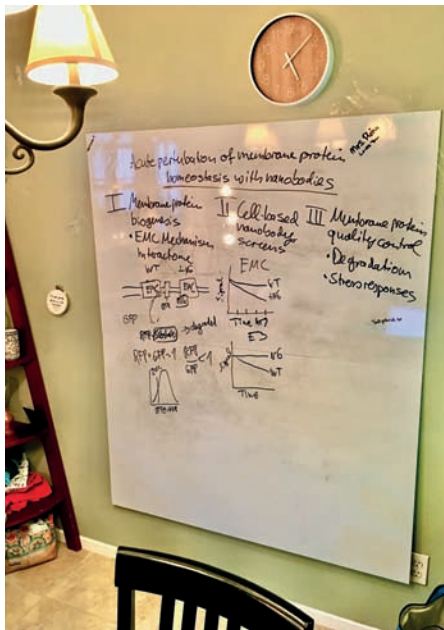 Acute perturbation of membrane protein
homeostasis with nanobodies
I Membrane protein
biogenesis
• EMC Mechanism
Interactome
WT +NG
EMC EMC
GFP
→ degraded
RFP = GFP = 1 RFP/GFP < 1
II Cell-based
nanobody
screens
EMC
WT
+NG
Time
NG
WT
Time
III Membrane protein
quality control
• Degradation
• Stress responses